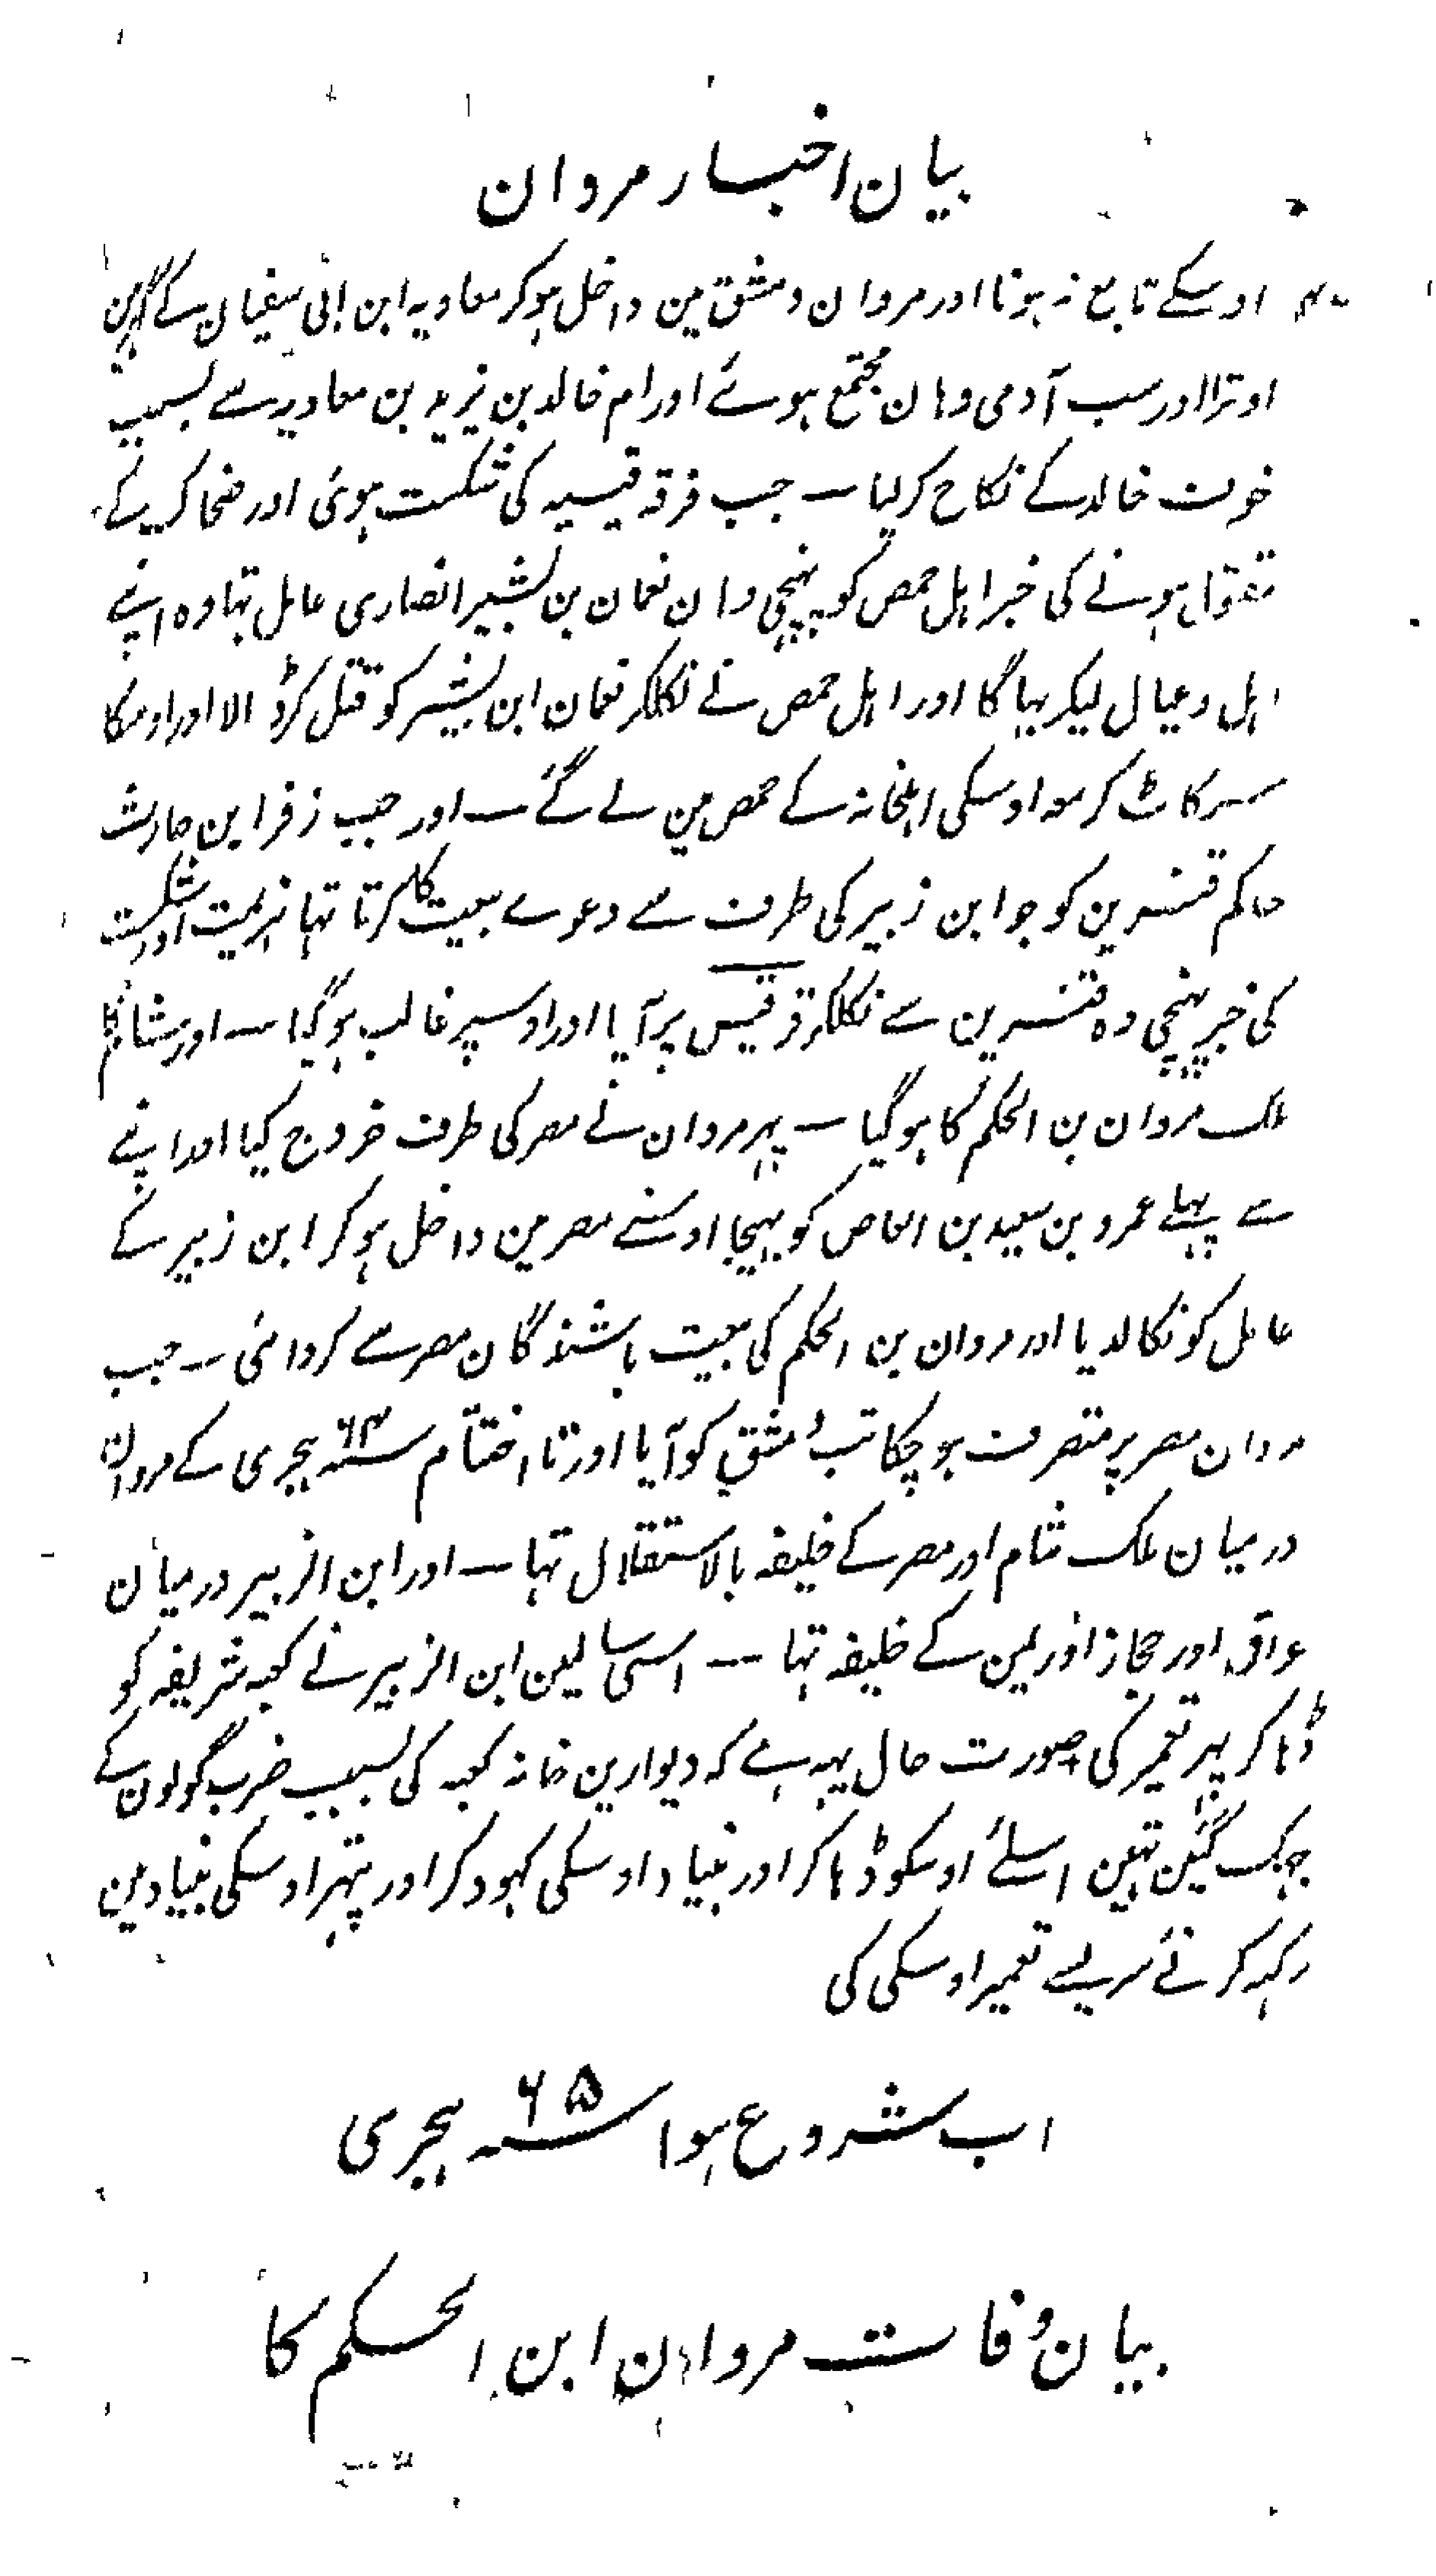 بیان اخبار مروان
اوسکے تابع نہ ہونا اور مروان دمشق مین داخل ہو کر معاویہ ابن ابی سفیان کے گہر مین
اوترا اور سب آدمی وہان مجتمع ہوئے اور ام خالد بن یزید بن معاویہ سے بسبب
خوف خالد کے نکاح کر لیا — جب فرقہ قیسیہ کی شکست ہوئی اور ضحاک کے
مقتول ہونے کی خبر اہل حمص کو پہنچی وہان نعمان بن بشیر انصاری عامل تہا وہ اپنے
اہل و عیال لیکر بہاگا اور اہل حمص نے نکلکر نعمان ابن بشیر کو قتل کر ڈالا اور اوسکا
سر کاٹ کر معہ اوسکی اہلخانہ کے حمص مین لے گئے — اور جب زفر ابن حارث
حاکم قنسرین کو جو ابن زبیر کی طرف سے دعوے بیعت کا کرتا تہا ہزیمت اور شکست
کی خبر پہنچی وہ قنسرین سے نکلکر قرقیس پر آیا اور اوسپر غالب ہو گیا — اور شام کا
ملک مروان بن الحکم کا ہو گیا — پہر مروان نے مصر کی طرف خروج کیا اور اپنے
سے پہلے عمرو بن سعید بن العاص کو بہیجا اوسنے مصر مین داخل ہو کر ابن زبیر کے
عامل کو نکالدیا اور مروان بن الحکم کی بیعت باشندگان مصر سے کروائی — جب
مروان مصر پر متصرف ہو چکا تب دمشق کو آیا اور تا اختتام سنہ ۶۴ ہجری کے مروان
درمیان ملک شام اور مصر کے خلیفہ بالاستقلال تہا — اور ابن الزبیر درمیان
عراق اور حجاز اور یمن کے خلیفہ تہا — اسی سالمین ابن الزبیر نے کعبہ شریفہ کو
ڈہا کر پہر تعمیر کی صورت حال یہہ ہے کہ دیوارین خانہ کعبہ کی بسبب ضرب گولون کے
جہک گئین تہین اسلئے اوسکو ڈہا کر اور بنیاد اوسکی کہود کر اور پتہر اوسکی بنیاد مین
رکہہ کر نئے سر سے تعمیر اوسکی کی
اب شروع ہوا سنہ ۶۵ ہجری
بیان وفات مروان ابن الحکم کا